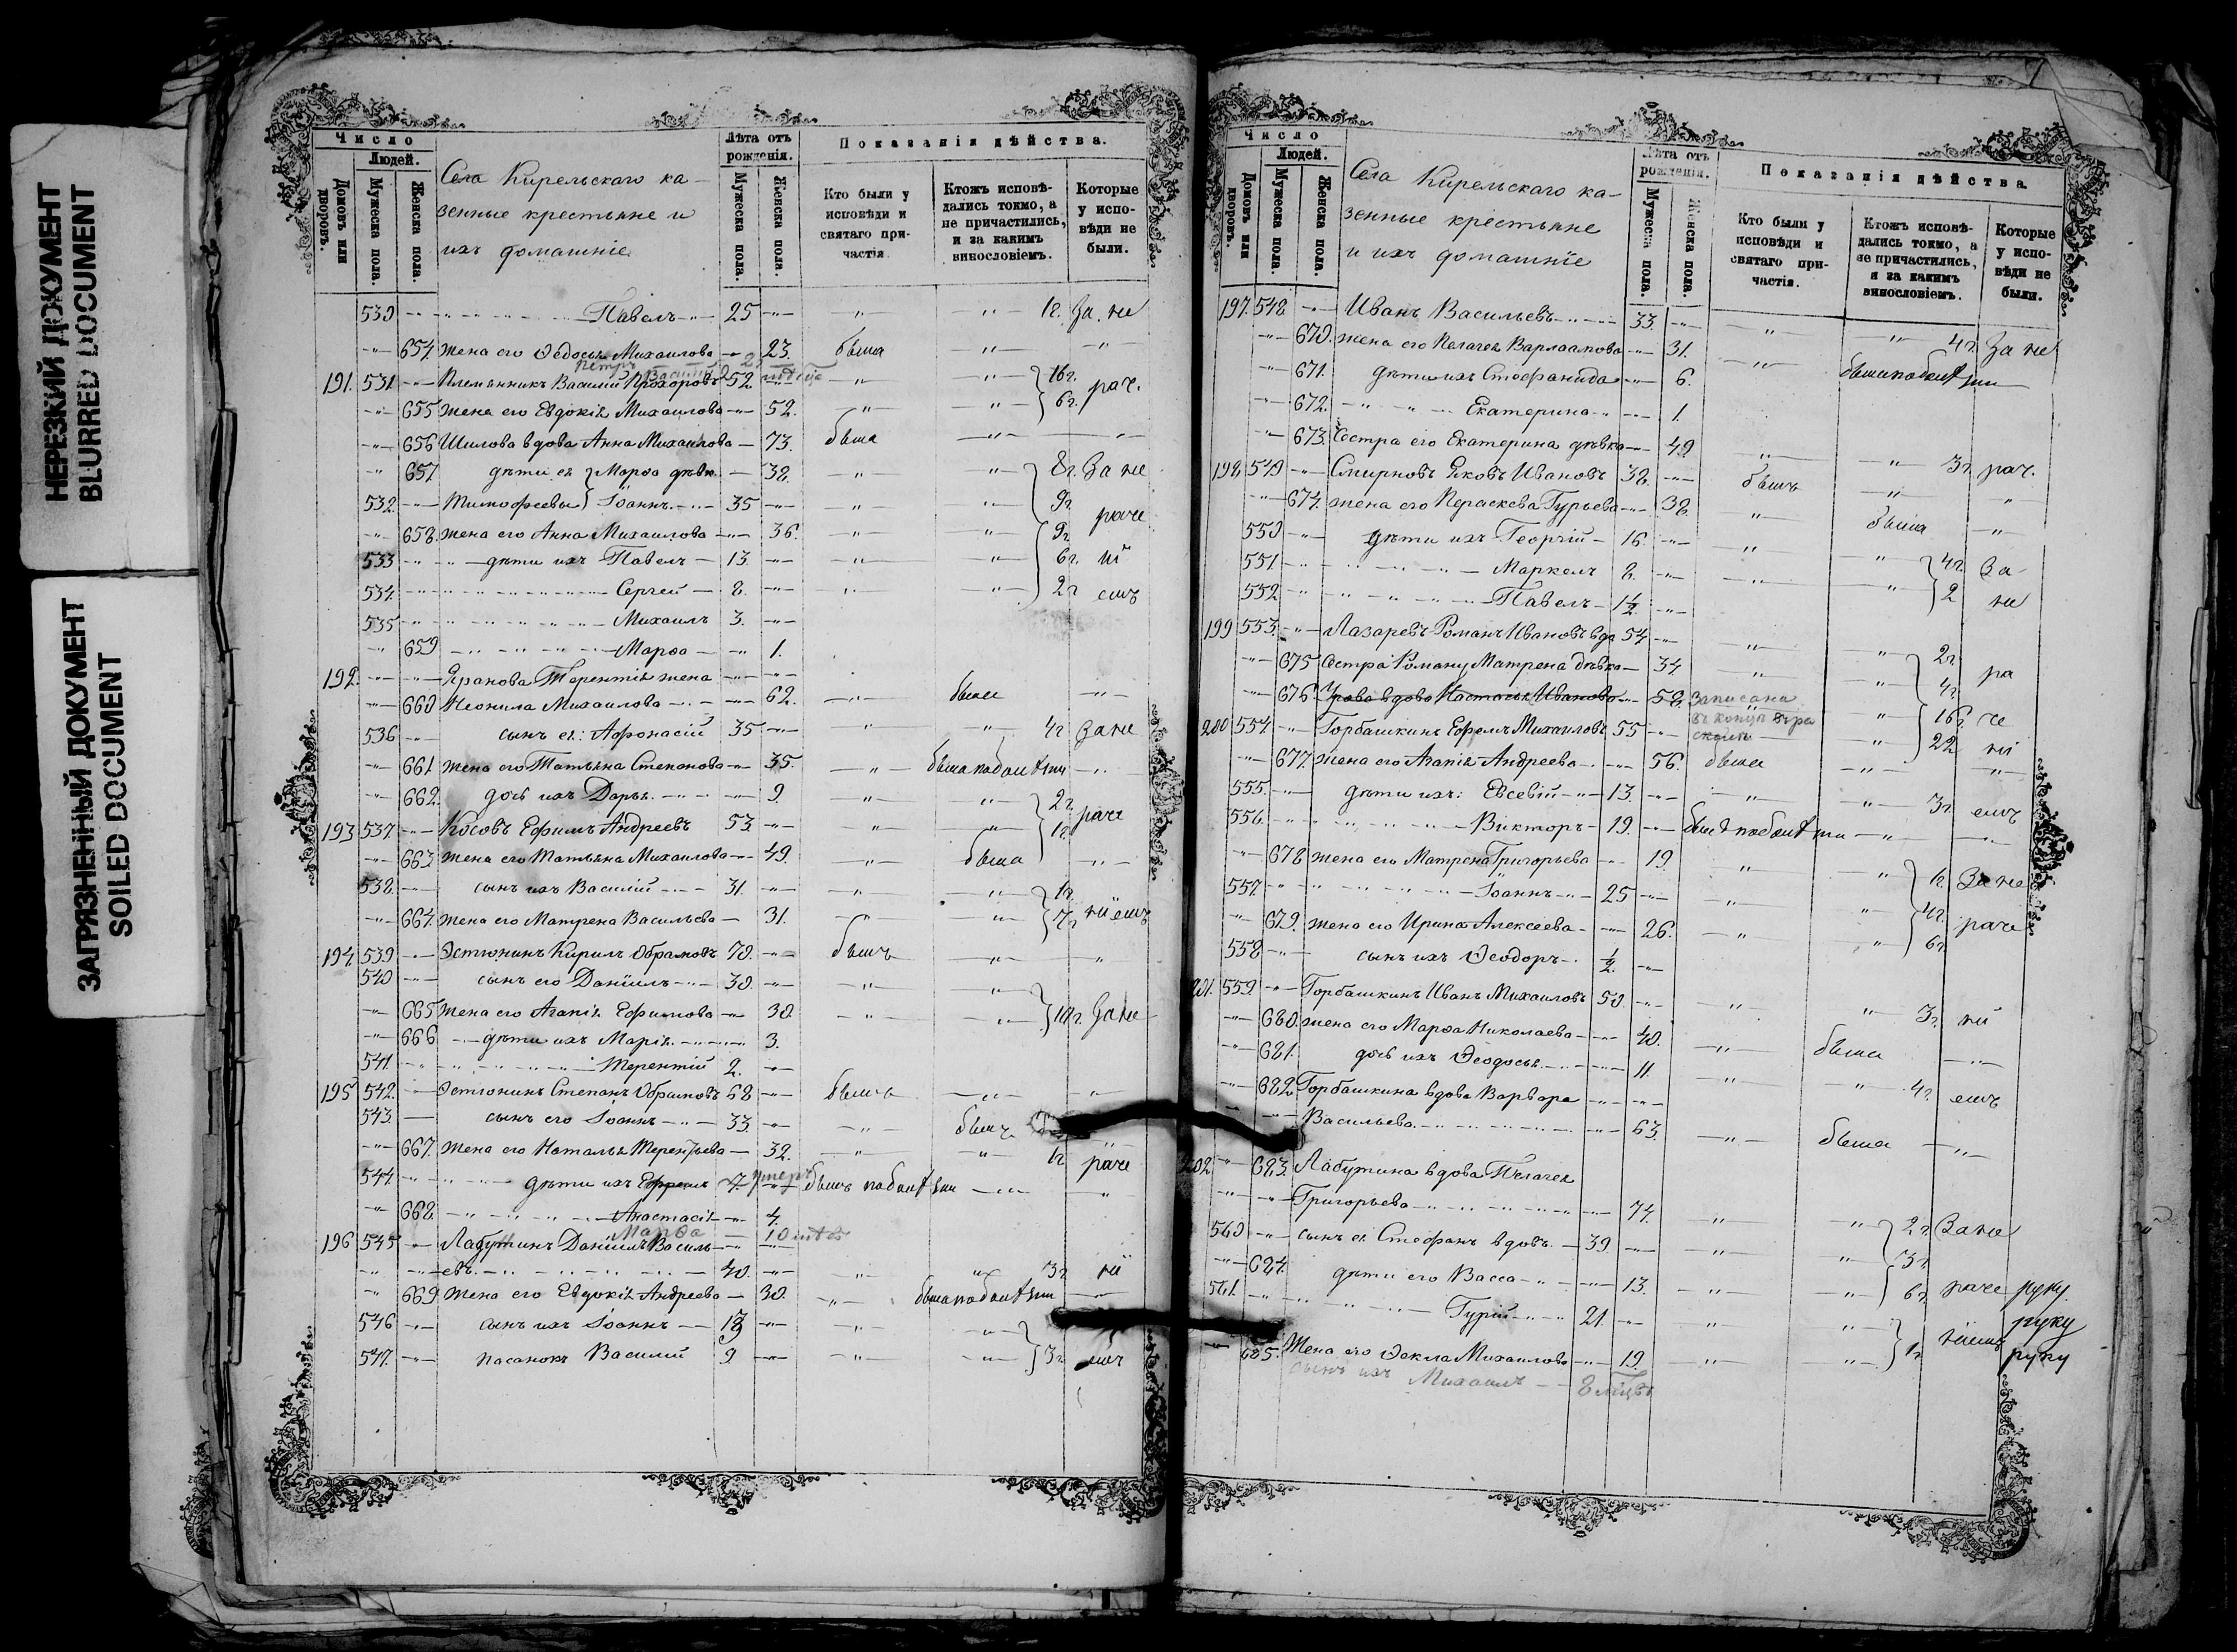 НЕРЕЗКИЙ ДОКУМЕНТ
BLURRED DOCUMENT
ЗАГРЯЗНЕННЫЙ ДОКУМЕНТ
SOILED DOCUMENT
Число
Людей.
Домовъ или дворовъ.
Мужеска пола.
Женска пола.
Села Кирельскаго ка-
зенные крестьяне и
ихъ домашніе
Лѣта отъ рожденія.
Мужеска пола.
Женска пола.
Показанія дѣйства.
Кто были у исповѣди и святаго при-частія
Ктожъ исповѣ-дались токмо, а не причастились, и за какимъ винословіемъ.
Которые у испо-вѣди не были.
530 Павелъ 25 1г. За не
654 жена его Ѳедосья Михаилова 23. была
191. 531 Племянникъ Василій Прохоровъ 52 16г. рач.
655 жена его Евдокія Михаилова 52. 6г.
656 Шилова вдова Анна Михаилова 73. была
657 дѣти ея Марѳа дѣвк. 38. 8г. За не
532 Тимофеевы Іоаннъ 35 9г.
658. жена его Анна Михаилова 36. 9г. раче
533 дѣти ихъ Павелъ 13. 6г. ні
534. Сергей 8. 2г емъ
535 Михаилъ 3.
659 Марѳа 1.
192. Терентія жена
660 Неонила Михаилова 62. была
536 сынъ ея: Афонасій 35 4г За не
661 жена его Татьяна Степанова 35.
662. дочь ихъ Дарья 9. 2г раче
193 537. Косовъ Ефимъ Андреевъ 53. 1г.
663 жена его Татьяна Михаилова 49. была
538. сынъ ихъ Василій 31. 1г.
664. жена его Матрена Васильева 31. 7г ніемъ
194. 539 Эстюнинъ Кирилъ Абрамовъ 70. былъ
540 сынъ его Даніилъ 30.
665 жена его Агапія Ефимова 30. За не
666 дѣти ихъ Марія 3.
541. Терентій 2.
195 542. Эстюнинъ Степанъ Абрамовъ 68
543. сынъ его Іоаннъ 33. былъ
667. жена его Наталья Терентьева 32. 1г раче
544. дѣти ихъ Ефремъ 7. умеръ
668. Анастасія 4.
Марѳа
196 545 Лабутинъ Даніилъ Василь-
евъ 40. 3г ні
669 жена его Евдокія Андреева 30.
546 сынъ ихъ Іоаннъ
547. пасанокъ Василій 9 3г емъ
Число
Людей.
Домовъ или дворовъ.
Мужеска пола.
Женска пола.
Села Кирельскаго ка-
зенные крестьяне
и ихъ домашніе
Лѣта отъ рожденія.
Мужеска пола.
Женска пола.
Показанія дѣйства.
Кто были у исповѣди и святаго при-частія.
Ктожъ исповѣ-дались токмо, а не причастились, и за какимъ винословіемъ.
Которые у испо-вѣди не были.
197. 548. Иванъ Васильевъ 33. 4г За не
670. жена его Пелагея Варлаамова 31.
671. дѣти ихъ Стефанида 6.
672. Екатерина 1.
673. Сестра его Екатерина дѣвка 49 3г рач.
198. 549 Смирновъ Яковъ Ивановъ 38. былъ
674. жена его Параскева Гурьева 38. была
550 дѣти ихъ Георгій 16. 4г. За
551 Маркелъ 8. 2 не
552 Павелъ 1½
199 553. Лазаревъ Романъ Ивановъ вдо 54 2г
675 Сестра Роману Матрена дѣвка 34 4г. ра
676 вдова Настасья Иванова 58. Записана
200 554 Горбашкинъ Ефремъ Михаиловъ 55 22 ні
677. жена его Агапія Андреева 56. была
555. дѣти ихъ: Евсевій 13. 3г. емъ
556. Викторъ 19.
678 жена его Матрена Григорьева 19. 1г. За не
557. Іоаннъ 25 4г.
679. жена его Ирина Алексеева 26. 6г раче
558 сынъ ихъ Ѳеодоръ ½
201. 559. Горбашкинъ Иванъ Михаиловъ 50. 3г. ні
680. жена его Марѳа Николаева 40. была
681. дочь ихъ Ѳеодосья 11. 4г. емъ
682 Горбашкина вдова Варвара
Васильева 63. была
202. 683. Лабутина вдова Пелагея
Григорьева 74. 2г За не
560 сынъ ея Стефанъ вдовъ. 39. 3г.
684. дѣти его Васса 13. 6г. раче руку
561. Гурій 21. руку
685. Жена его Ѳекла Михаилова 19. 1г ніемъ руку
сынъ ихъ Михаилъ